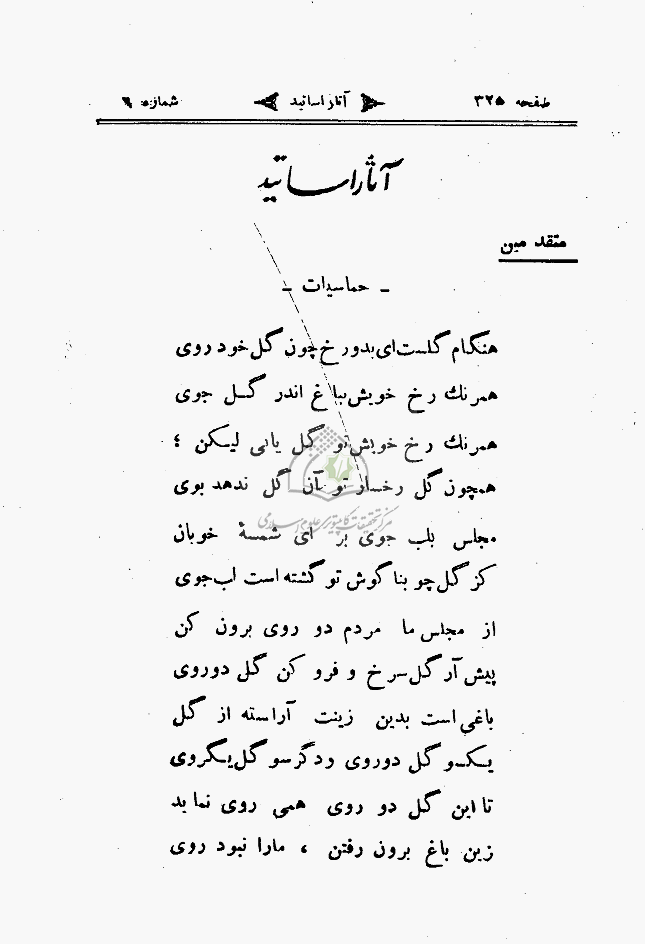 صفحه ۳۲۵ آثار اساتید شماره ۶
آثار اساتید
متقدمین
ـ حماسیات ـ
هنگام گلست ای بدو رخ چون گل خود روی
همرنك رخ خویش بباغ اندر گل جوی
همرنك رخ خویش تو گل یابی لیکن ؛
همچون گل رخسار تو آن گل ندهد بوی
مجلس بلب جوی بر ای شمسهٔ خوبان
کز گل چو بناگوش تو گشته است لب جوی
از مجلس ما مردم دو روی برون کن
پیش آر گل سرخ و فرو کن گل دوروی
باغی است بدین زینت آراسته از گل
یکسو گل دوروی و دگر سو گل یکروی
تا این گل دو روی همی روی نماید
زین باغ برون رفتن ، مارا نبود روی
مرکز تحقیقات کامپیوتری علوم اسلامی